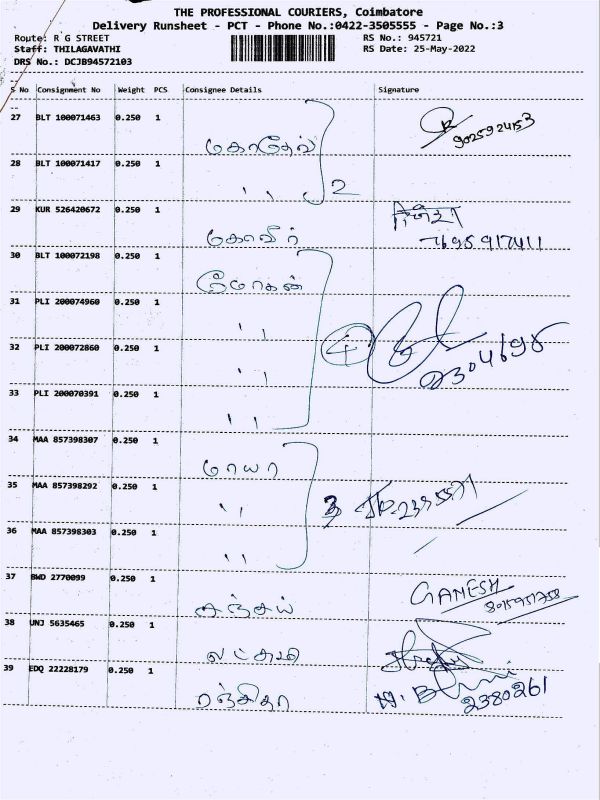 THE PROFESSIONAL COURIERS, Coimbatore
Delivery Runsheet - PCT - Phone No.:0422-3505555 - Page No.:3
Route: R G STREET
RS No.: 945721
Staff: THILAGAVATHI
RS Date: 25-May-2022
DRS No.: DCJB94572103
S No Consignment No Weight PCS Consignee Details Signature
27 BLT 100071463 0.250 1
மகாதேவ் 9025924153
28 BLT 100071417 0.250 1
,, 2
29 KUR 526420672 0.250 1
மகாவீர் 7695917411
30 BLT 100072198 0.250 1
மோகன்
31 PLI 200074960 0.250 1
,,
32 PLI 200072860 0.250 1 4
,, 2304698
33 PLI 200070391 0.250 1
,,
34 MAA 857398307 0.250 1
மாயா
35 MAA 857398292 0.250 1
,, 3
36 MAA 857398303 0.250 1
,,
37 BWD 2770099 0.250 1 GANESH
சஞ்சய் 8015951758
38 UNJ 5635465 0.250 1
39 EDQ 22228179 0.250 1
ரஞ்சிதா 2380261